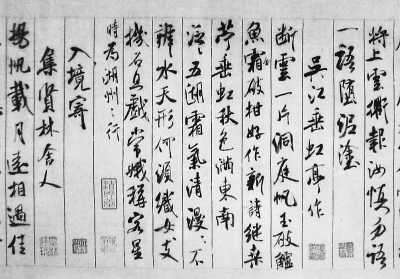 將上雲衢報汝慎勿語
一語墮泥塗
吳江垂虹亭作
斷雲一片洞庭帆玉破鱸
魚霜破柑好作新詩継桑
苧垂虹秋色滿東南
泛〻五湖霜氣清漫〻不
辨水天形何須織女支
機石且戲常娥稱客星
時為湖州之行
入境寄
集賢林舍人
揚帆載月遠相過佳